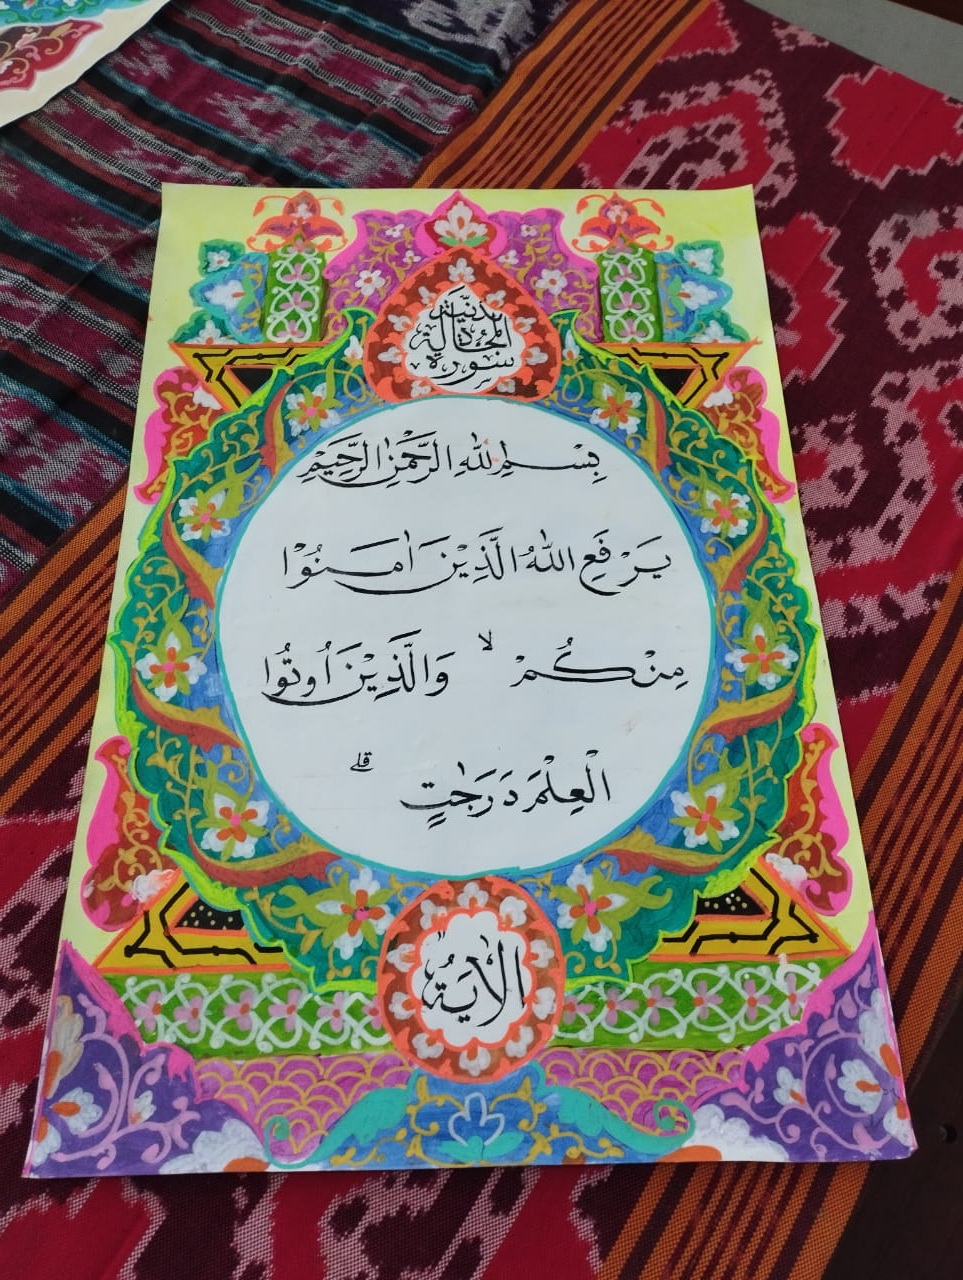 سورة المجادلة مدنية
بِسْمِ اللهِ الرَّحْمٰنِ الرَّحِيْمِ
يَرْفَعِ اللهُ الَّذِيْنَ اٰمَنُوْا
مِنْكُمْ ۙ وَالَّذِيْنَ اُوتُوا
الْعِلْمَ دَرَجٰتٍ ۗ
الاية